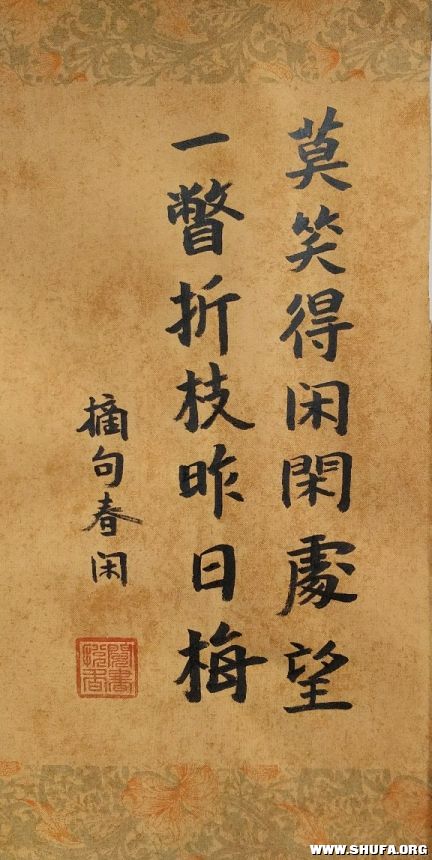 莫笑得闲閑處望
一瞥折枝昨日梅
摘句春闲
WWW.SHUFA.ORG